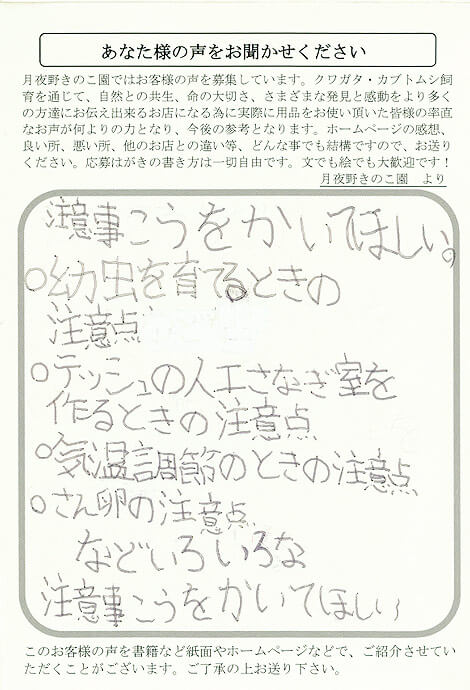 あなた様の声をお聞かせください
月夜野きのこ園ではお客様の声を募集しています。クワガタ・カブトムシ飼
育を通じて、自然との共生、命の大切さ、さまざまな発見と感動をより多く
の方達にお伝え出来るお店になる為に実際に用品をお使い頂いた皆様の率直
なお声が何よりの力となり、今後の参考となります。ホームページの感想、
良い所、悪い所、他のお店との違い等、どんな事でも結構ですので、お送り
ください。応募はがきの書き方は一切自由です。文でも絵でも大歓迎です！
月夜野きのこ園　より
注意事こうをかいてほしい。
○幼虫を育てるときの
注意点
○テッシュの人工さなぎ室を
作るときの注意点
○気温調節のときの注意点
○さん卵の注意点
などいろいろな
注意事こうをかいてほしい
このお客様の声を書籍など紙面やホームページなどで、ご紹介させてい
ただくことがございます。ご了承の上お送り下さい。